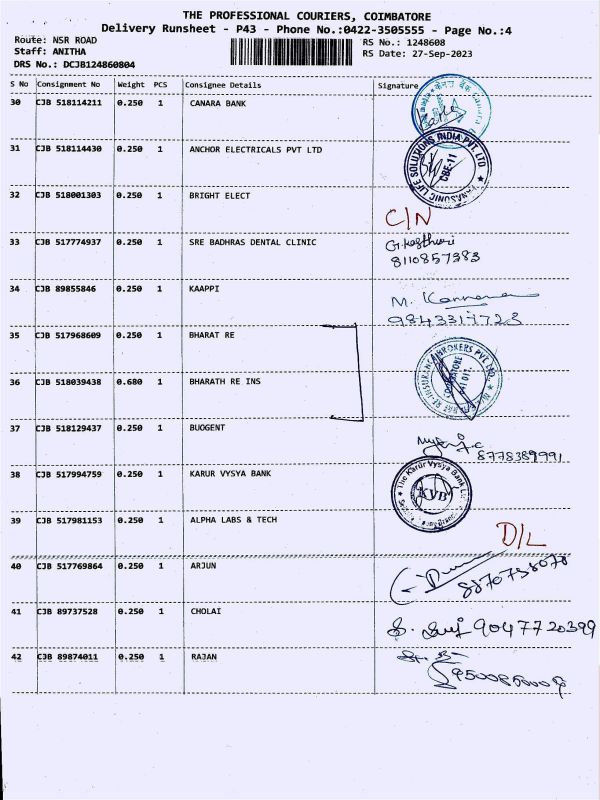 THE PROFESSIONAL COURIERS, COIMBATORE
Delivery Runsheet - P43 - Phone No.:0422-3505555 - Page No.:4
Route: NSR ROAD
RS No.: 1248608
Staff: ANITHA
RS Date: 27-Sep-2023
DRS No.: DCJB124860804
S No Consignment No Weight PCS Consignee Details Signature
30 CJB 518114211 0.250 1 CANARA BANK
31 CJB 518114430 0.250 1 ANCHOR ELECTRICALS PVT LTD
PANASONIC LIFE SOLUTIONS INDIA PVT. LTD
CBE-11
32 CJB 518001303 0.250 1 BRIGHT ELECT
C/N
33 CJB 517774937 0.250 1 SRE BADHRAS DENTAL CLINIC
8110857383
34 CJB 89855846 0.250 1 KAAPPI
M. Kannan
9843317723
35 CJB 517968609 0.250 1 BHARAT RE
36 CJB 518039438 0.680 1 BHARATH RE INS
37 CJB 518129437 0.250 1 BUOGENT
8778389991
38 CJB 517994759 0.250 1 KARUR VYSYA BANK
The Karur Vysya Bank
KVB
39 CJB 517981153 0.250 1 ALPHA LABS & TECH
D/L
40 CJB 517769864 0.250 1 ARJUN
41 CJB 89737528 0.250 1 CHOLAI
9047720399
42 CJB 89874011 0.250 1 RAJAN